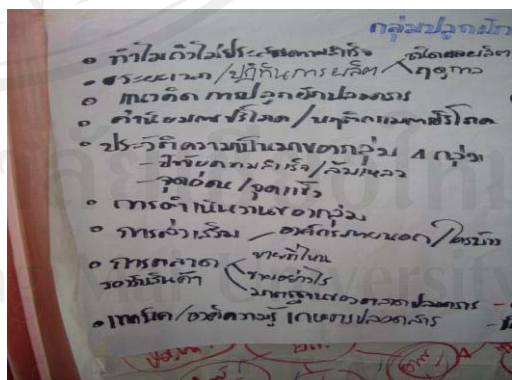 กลุ่มปลูกผัก
• ทำไมถึงไม่ประสบความสำเร็จ
• ระยะเวลา/ปฏิทินการผลิต ฤดูกาล
• แนวคิด การปลูกผักปลอดสาร
• ค่านิยมการบริโภค/พฤติกรรมการบริโภค
• ประวัติความเป็นมาของกลุ่ม 4 กลุ่ม
- ปัจจัยความสำเร็จ/ล้มเหลว
- จุดอ่อน/จุดแข็ง
• การดำเนินงานของกลุ่ม
• การส่งเสริม องค์กรภายนอก/ใครบ้าง
• การตลาด ขายที่ไหน
รองรับสินค้า ขายอย่างไร
มาตรฐานของตลาดปลอดสาร
• เทคนิค/องค์ความรู้ เกษตรปลอดสาร